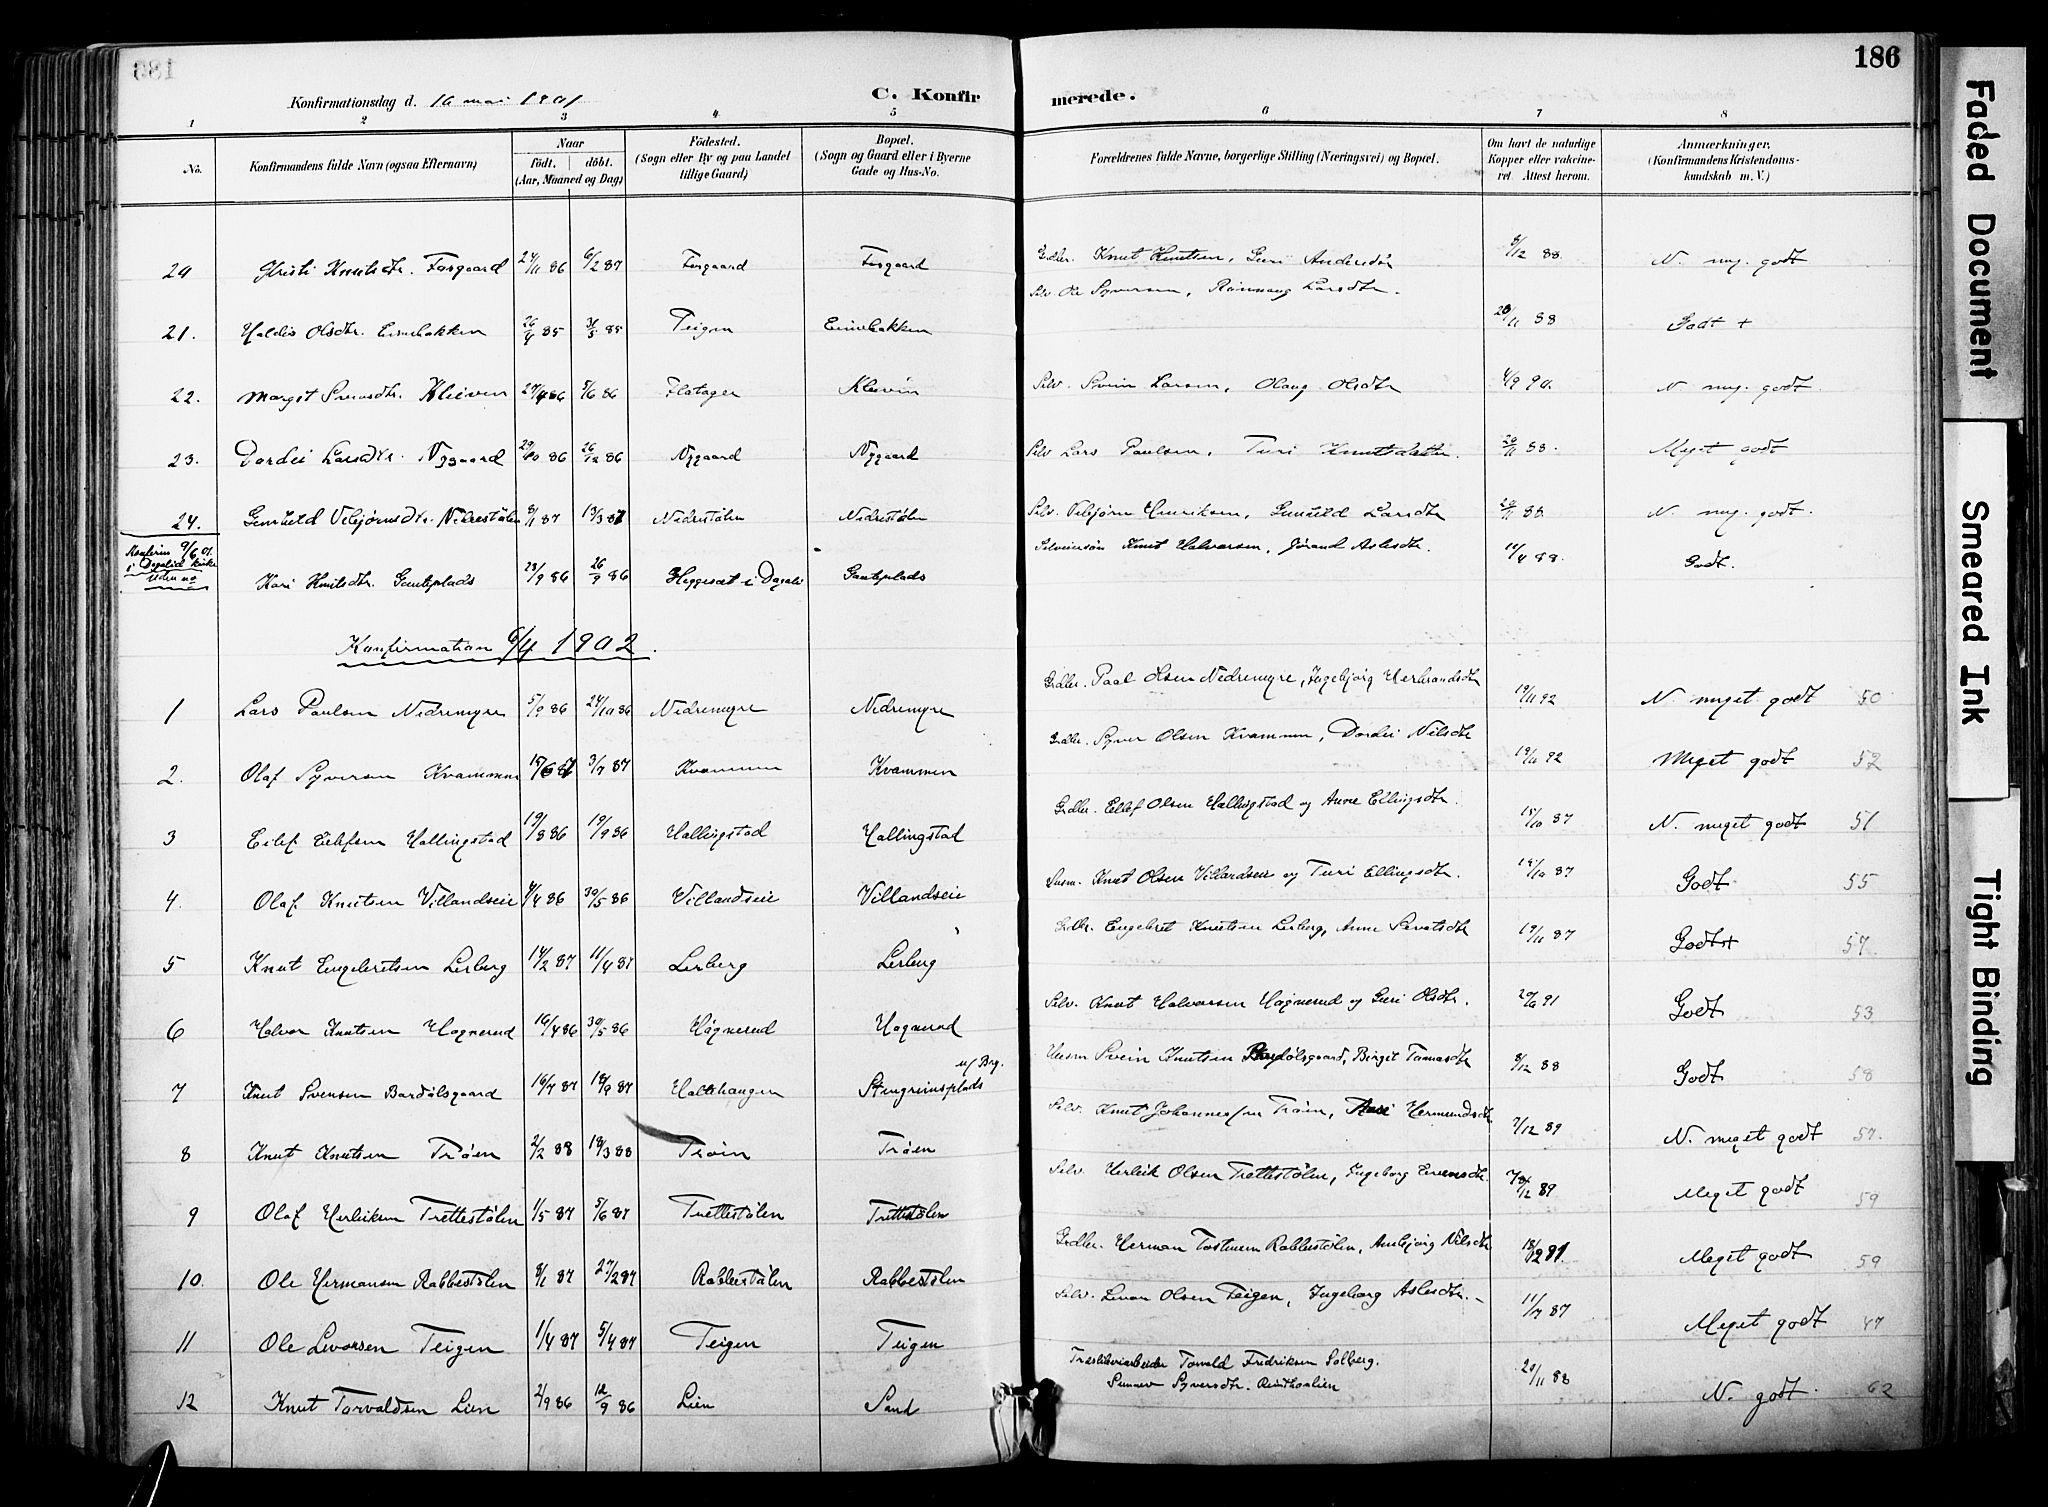 186
Konfirmationsdag d. 16 mai 1901
C. Konfirmerede.
1 2 3 4 5 6 7 8
No. Konfirmandens fulde Navn (ogsaa Efternavn) Naar födt. döbt. (Aar, Maaned og Dag) Födested. (Sogn eller By og paa Landet tillige Gaard) Bopæl. (Sogn og Gaard eller i Byerne Gade og Hus-No. Forældrenes fulde Navne, borgerlige Stilling (Næringsvei) og Bopæl. Om havt de naturlige Kopper eller vakcineret. Attest herom. Anmærkninger, (Konfirmandens Kristendomskundskab m. V.)
20 Knutsdtr. Fosgaard 6/2 87 Fosgaard Fosgaard Grdbr. Knut Knutsen, Guri Andersdtr 8/12 88 N. mg. godt
21. Haldis Olsdtr. 26/4 85 31/5 85 Teigen Selv. Ole Syversen, Rannaug Larsdtr. 28/11 88 Godt +
22. Margit Svensdtr. Kleiven 27/4 86 5/6 86 Flatager Kleivin Selv. Svein Larsen, Olaug Olsdtr 4/9 90. N mg. godt.
23. Dordei Larsdtr. Nygaard 29/10 86 26/12 86 Nygaard Nygaard Selv Lars Paulsen, Turi Knutsdatter. 20/11 88. Meget godt
24. Gunhild Vebjørnsdtr. Nedrestølen 8/1 87 13/3 87 Nedrestølen Nedrestølen Selv. Vebjørn Henriksen, Gunhild Larsdtr 20/11 88. N. mg. godt.
Konfirm 9/6 01. i Dagalid kirke Uden no Kari Knutsdtr. Gauteplads 23/9 86 26/9 86 Heggeset i Dagali Gauteplads Selveiersøn Knut Halvorsen, Jørand Aslesdtr. 11/4 88. Godt.
Konfirmation 6/4 1902.
1 Lars Paulsen Nedremyre 5/9 86 24/10 86 Nedremyre Nedremyre Grdbr. Paal Olsen Nedremyre, Ingebjørg Herbrandsdtr 19/11 92 N. meget godt 50
2. Olaf Syversen Kvammen 15/6 87 3/7 87 Kvammen Kvammen Grdbr. Syver Olsen Kvammen, Dordei Nilsdtr 19/11 92 Meget godt 52
3 Eilef Eilefsen Hallingstad 19/8 86 19/9 86 Hallingstad Hallingstad Grdbr. Eilef Olsen Hallingstad og Anne Ellingsdtr. 15/10 87 N. meget godt 51
4. Olaf Knutsen Villandseie 4/4 86 30/5 86 Villandseie Villandseie Husm. Knut Olsen Villandseie og Turi Ellingsdtr. 14/10 87 Godt 55
5 Knut Engebretsen Lerberg 14/2 87 11/4 87 Lerberg Lerberg Grdbr. Engebret Knutsen Lerberg, Anne 19/11 87 Godt+ 57.
6 Halvor Knutsen Hagnerud 16/4 86 30/5 86 Hagnerud Hagnerud Selv. Knut Halvorsen Hagnerud og Guri Olsdtr. 29/6 91 Godt 53
7 Knut Svensen Bardølsgaard 16/7 87 18/9 87 Haltehaugen Stengrimsplads u/ Brg. Husm Svein Knutsen Bardølsgaard, Birgit Tomasdtr 8/12 88 Godt 58
8 Knut Knutsen Trøen 2/2 88 18/3 88 Trøin Trøen Selv. Knut Johannessen Trøen, Kari Hermundsdtr 7/12 89 N. meget godt 57.
9 Olaf Herleiksen Trettestølen 1/5 87 5/6 87 Trettestølen Trettestølen Selv. Herleik Olsen Trettestølen, Ingeborg Evensdtr. 12 89 Meget godt 59
10. Ole Hermansen Rabbestølen 8/1 87 27/2 87 Rabbestølen Rabbestølen Grdbr. Herman Tostensen Rabbestølen, Ambjørg Nilsdtr 18/12 91. Meget godt 59
11 Ole Levorsen Teigen 1/4 87 5/4 87 Teigen Teigen Selv. Levor Olsen Teigen, Ingeborg Aslesdtr. 11/7 87 Meget godt 47
12 Knut Torvaldsen Lien 2/9 86 12/9 86 Lien Sand Træsliberiarbeider Torvald Fredriksen Solberg. Sunnev Syversdtr. 20/11 88 N. godt. 62
Faded Document
Smeared Ink
Tight Binding